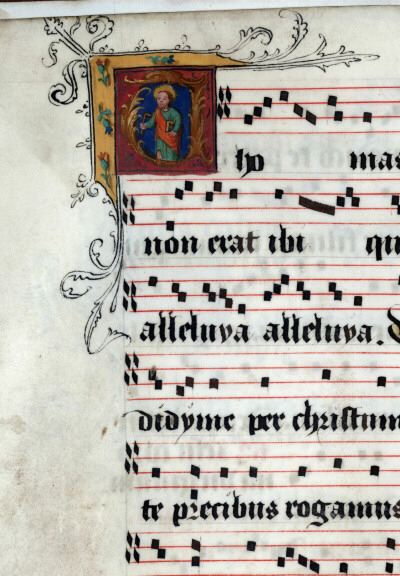 Thomas
non erat ibi qu
alleluya alleluya.
didyme per christum
te precibus rogamus